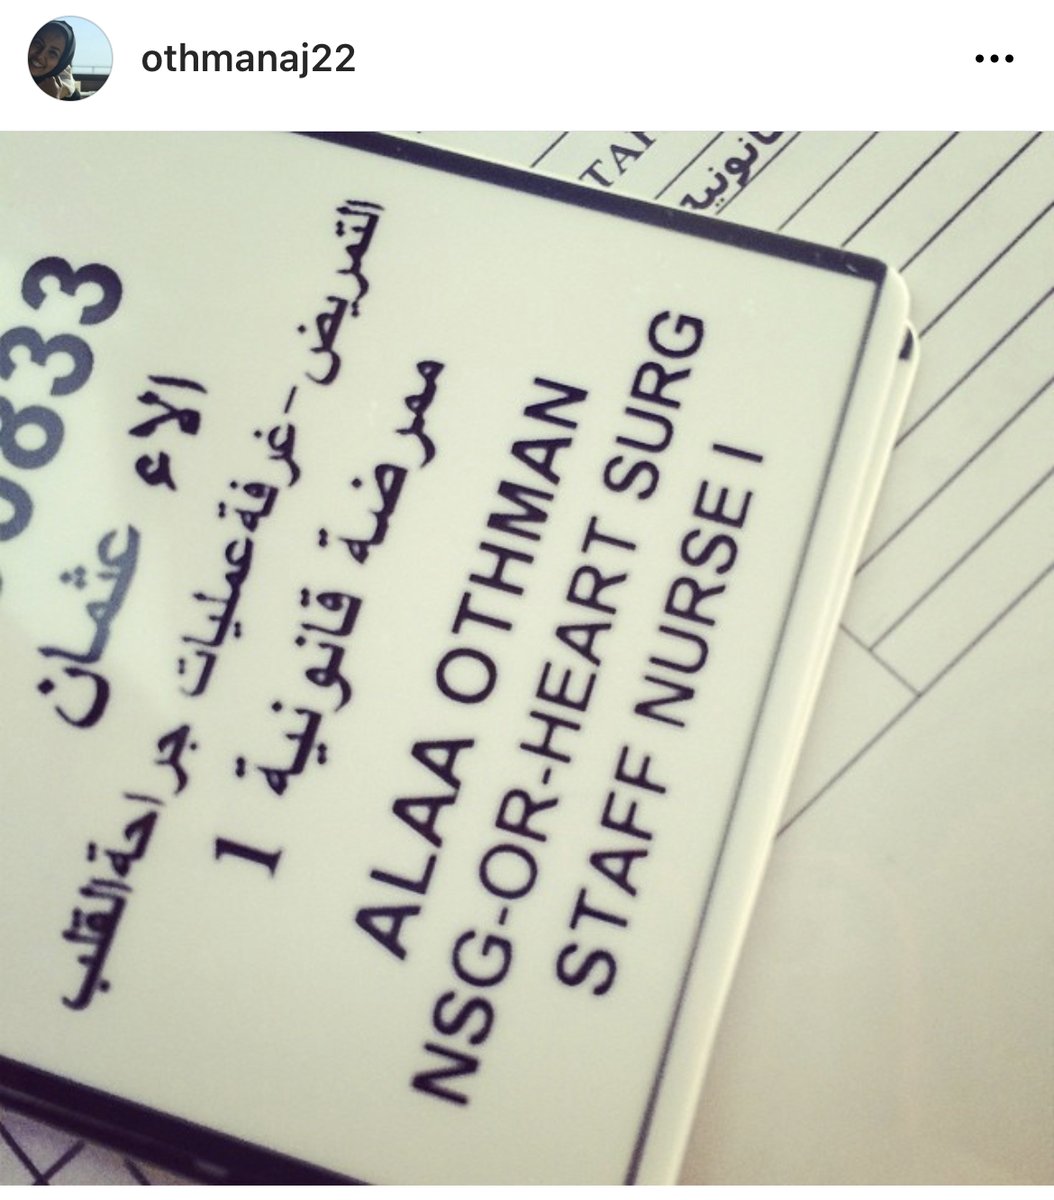 othmanaj22
TAF
قانونية
0833
الاء عثمان
التمريض - غرفة عمليات جراحة القلب
ممرضة قانونية 1
ALAA OTHMAN
NSG-OR-HEART SURG
STAFF NURSE I